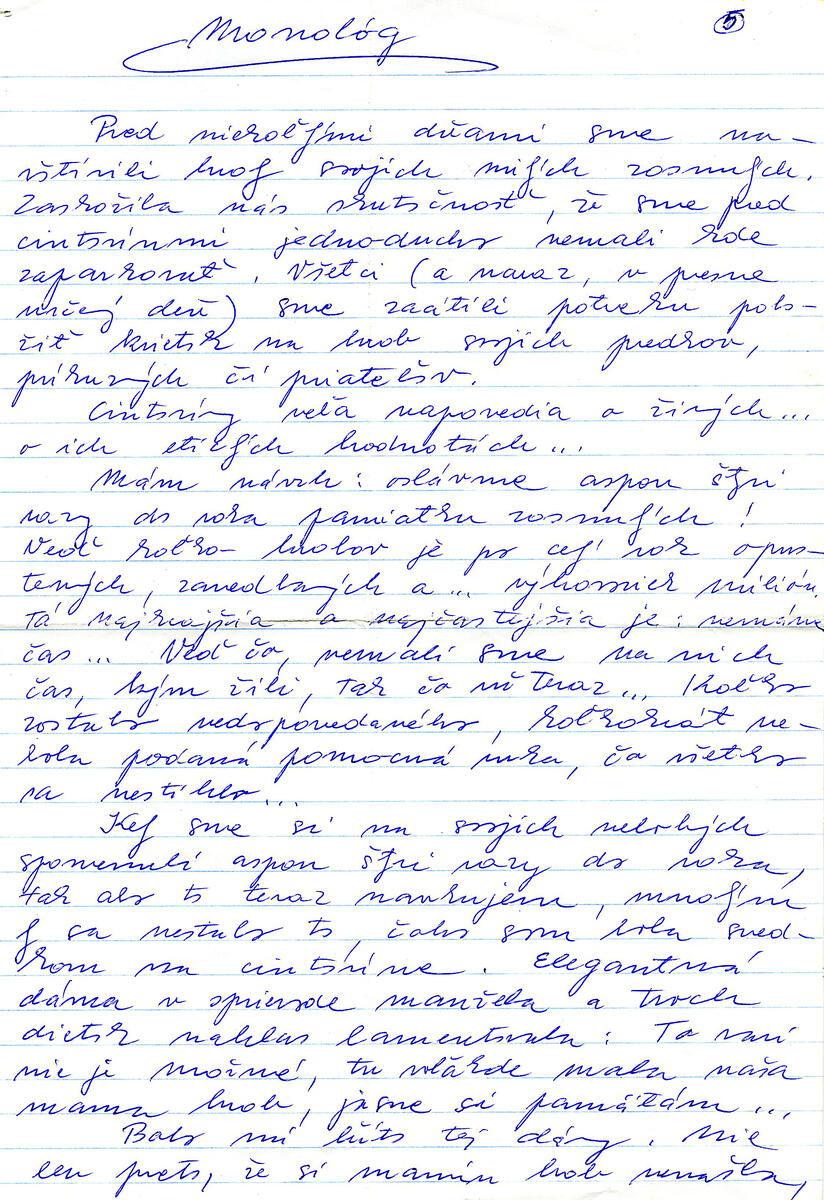 Monológ
5
Pred niekoľkými dňami sme na-
vštívili hrob svojich milých zosnulých.
Zaskočila nás skutočnosť, že sme pred
cintorínmi jednoducho nemali kde
zaparkovať. Všetci (a naraz, v presne
určený deň) sme zacítili potrebu polo-
žiť kvietok na hrob svojich predkov,
príbuzných či priateľov.
Cintoríny veľa napovedia o živých...
o ich etických hodnotách...
Mám návrh: oslávme aspoň štyri
razy do roka pamiatku zosnulých!
Veď koľko hrobov je po celý rok opus-
tených, zanedbaných a... výhovoriek milión.
Tá najkrajšia a najčastejšia je: nemáme
čas... Veď čo, nemali sme na nich
čas, kým žili, tak čo už teraz... Koľko
zostalo nedopovedaného, koľkokrát ne-
bola podaná pomocná ruka, čo všetko
sa nestihlo...
Keby sme si na svojich nebohých
spomenuli aspoň štyri razy do roka,
tak ako to teraz navrhujem, mnohým
by sa nestalo to, čoho som bola sved-
kom na cintoríne. Elegantná
dáma v sprievode manžela a troch
dietok nahlas lamentovala: To vari
nie je možné, tu voľakde mala naša
mama hrob, jasne si pamätám...
Bolo mi ľúto tej dámy. Nie
len preto, že si mamin hrob nenašla,